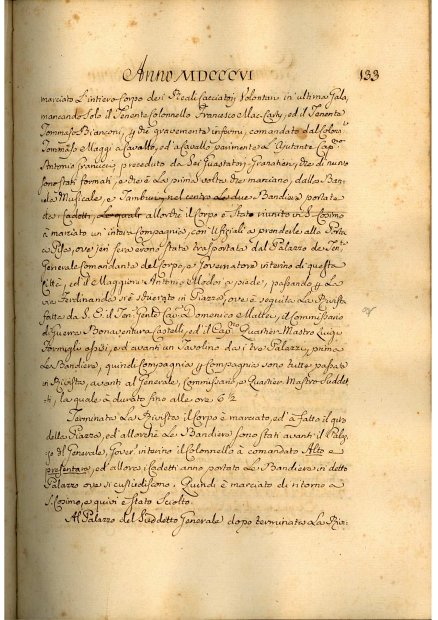 Anno MDCCCVI 133
marciato L'intiero Corpo dei Reali Cacciatorj Volontarj in ultima Gala,
mancando solo il Tenente Colonnello Francesco Mac-Carty, ed il Tenente
Tommaso Bianconi, gravemente infermi, comandato dal Colon.
Tommaso Maggi a Cavallo, ed a Cavallo parimente L'Ajutante Cap.
Antonio preceduto da Sei Guastatorj Granatieri, che di nuovo
sono stati formati, e che è La prima volta che marciano, dalla Ban-
da Musicale, e Tamburi, nel centro Le due Bandiere portate
da Cadetti, Le quali allorchè il Corpo è Stato riunito in S. Cosimo
à marciato un'intera Compagnia, con Ufiziali a prenderle alla Porta
a Pisa, ove jeri sera erono State trasportate dal Palazzo del Ten.
Generale Comandante del Corpo, e Governatore interino di questa
Città, ed il Maggiore Antonio a piede, passando
via Ferdinanda si è Situato in Piazza, ove è seguita La Rivista
fatta da S. E. il Ten. Gente. Cav. Domenico Matteo, il Commissario
di Guerra Bonaventura Castelli, ed il Cap.no Quartier Mastro Luigi
Formigli assisi, ed avanti un Tavolino da i tre Palazzi, prima
Le Bandiere, quindi Compagnia Compagnia sono tutte passate
in Rivista, avanti al Generale, Commissario, e Quartier-Mastro Suddet-
ti, la quale à durato fino alle ore 6 1/2
Terminata La Rivista il Corpo è marciato, ed à fatto il giro
della Piazza, ed allorchè Le Bandiere sono stati avanti il Palaz-
zo del Generale, Gover. interino il Colonnello à comandato Alto e
presentare, ed allora i Cadetti anno portato Le Bandiere in detto
Palazzo ove si custodiscono. Quindi è marciato di ritorno a
S. Cosimo, e quivi è Stato Sciolto.
Al Palazzo del Suddetto Generale dopo terminata La Rivi-